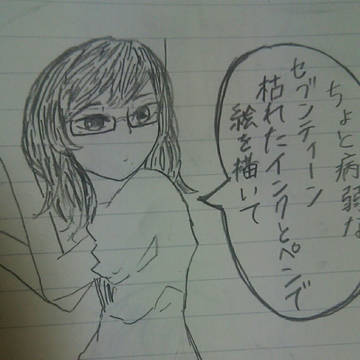 ちょと病弱な
セブンティーン
枯れたインクとペンで
絵を描いて